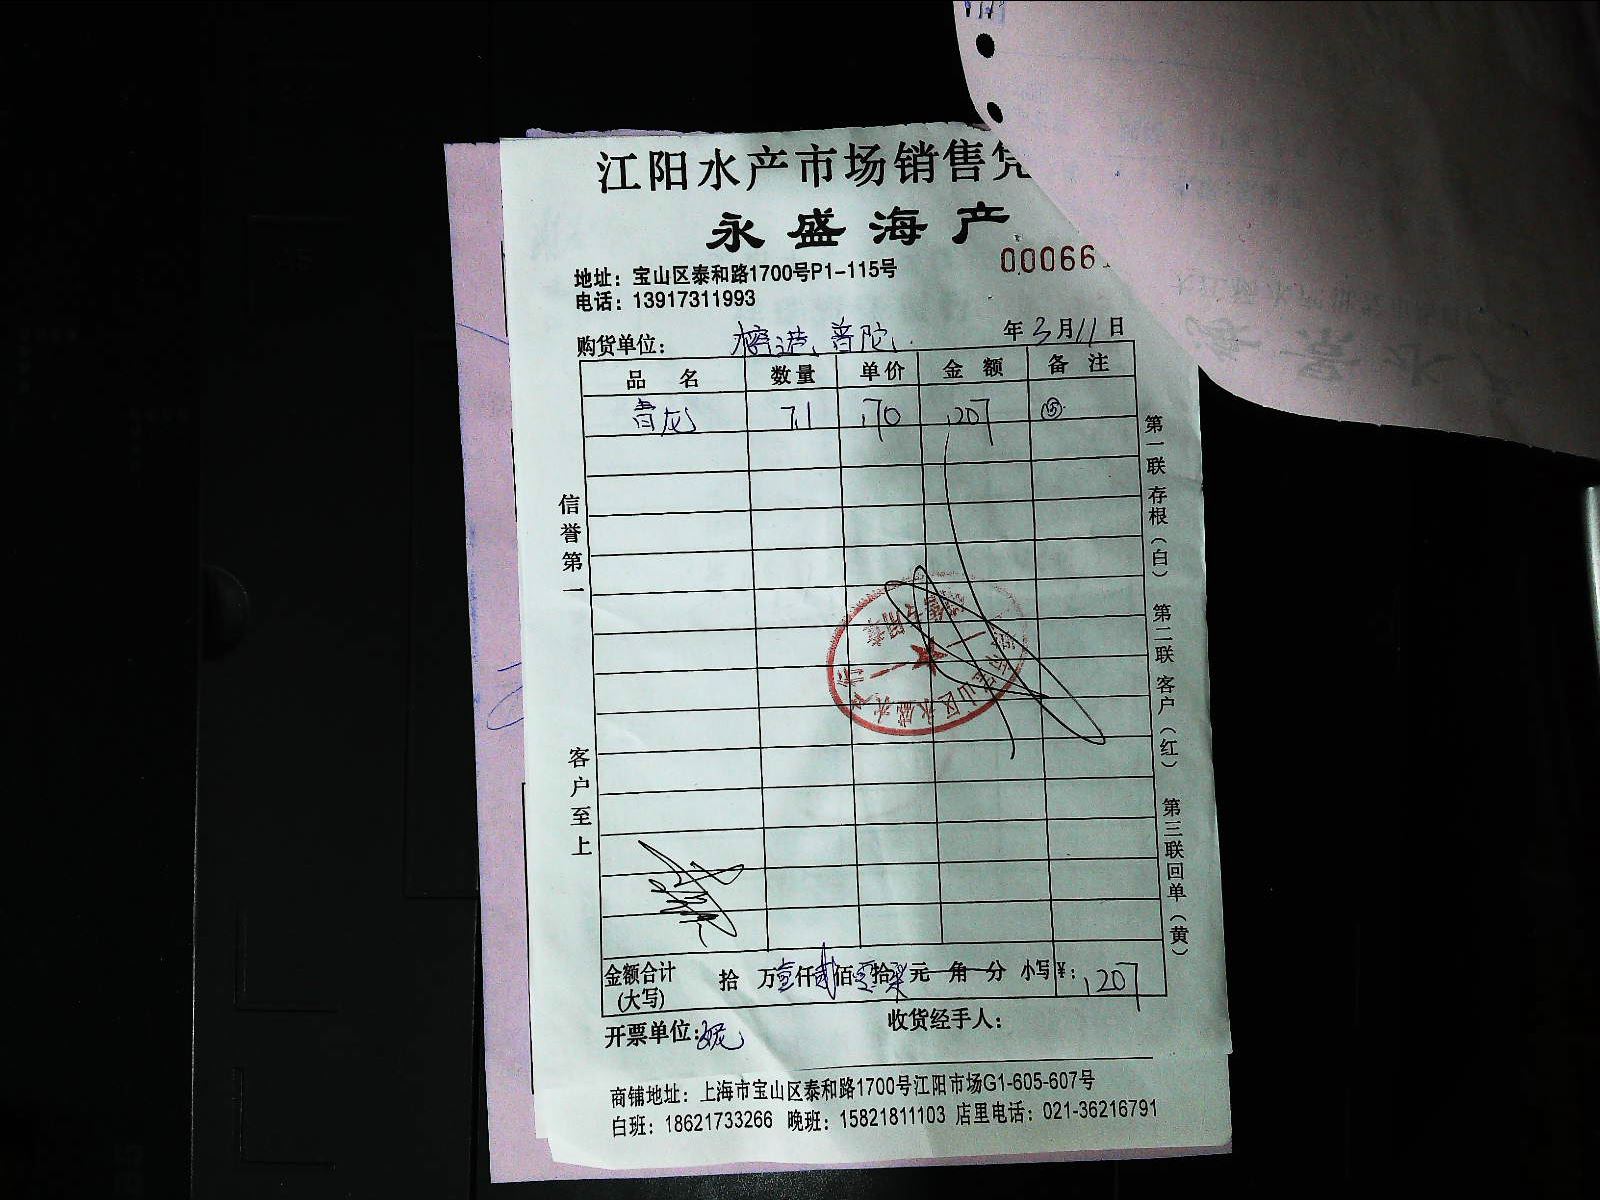 江阳水产市场销售凭
永盛海产
00066
地址：宝山区泰和路1700号P1-115号
电话：13917311993
购货单位： 榕造 普陀 年3月11日
品 名 数量 单价 金 额 备 注
青龙 7.1 170 1207 ⑤
信誉第一
客户至上
第一联 存根（白） 第二联 客户（红） 第三联 回单（黄）
宝山区永盛水产行
专用章
金额合计 拾 万壹仟贰佰零拾柒元 角 分 小写¥： 1207
(大写)
开票单位： 收货经手人：
商铺地址： 上海市宝山区泰和路1700号江阳市场G1-605-607号
白班： 18621733266 晚班： 15821811103 店里电话： 021-36216791